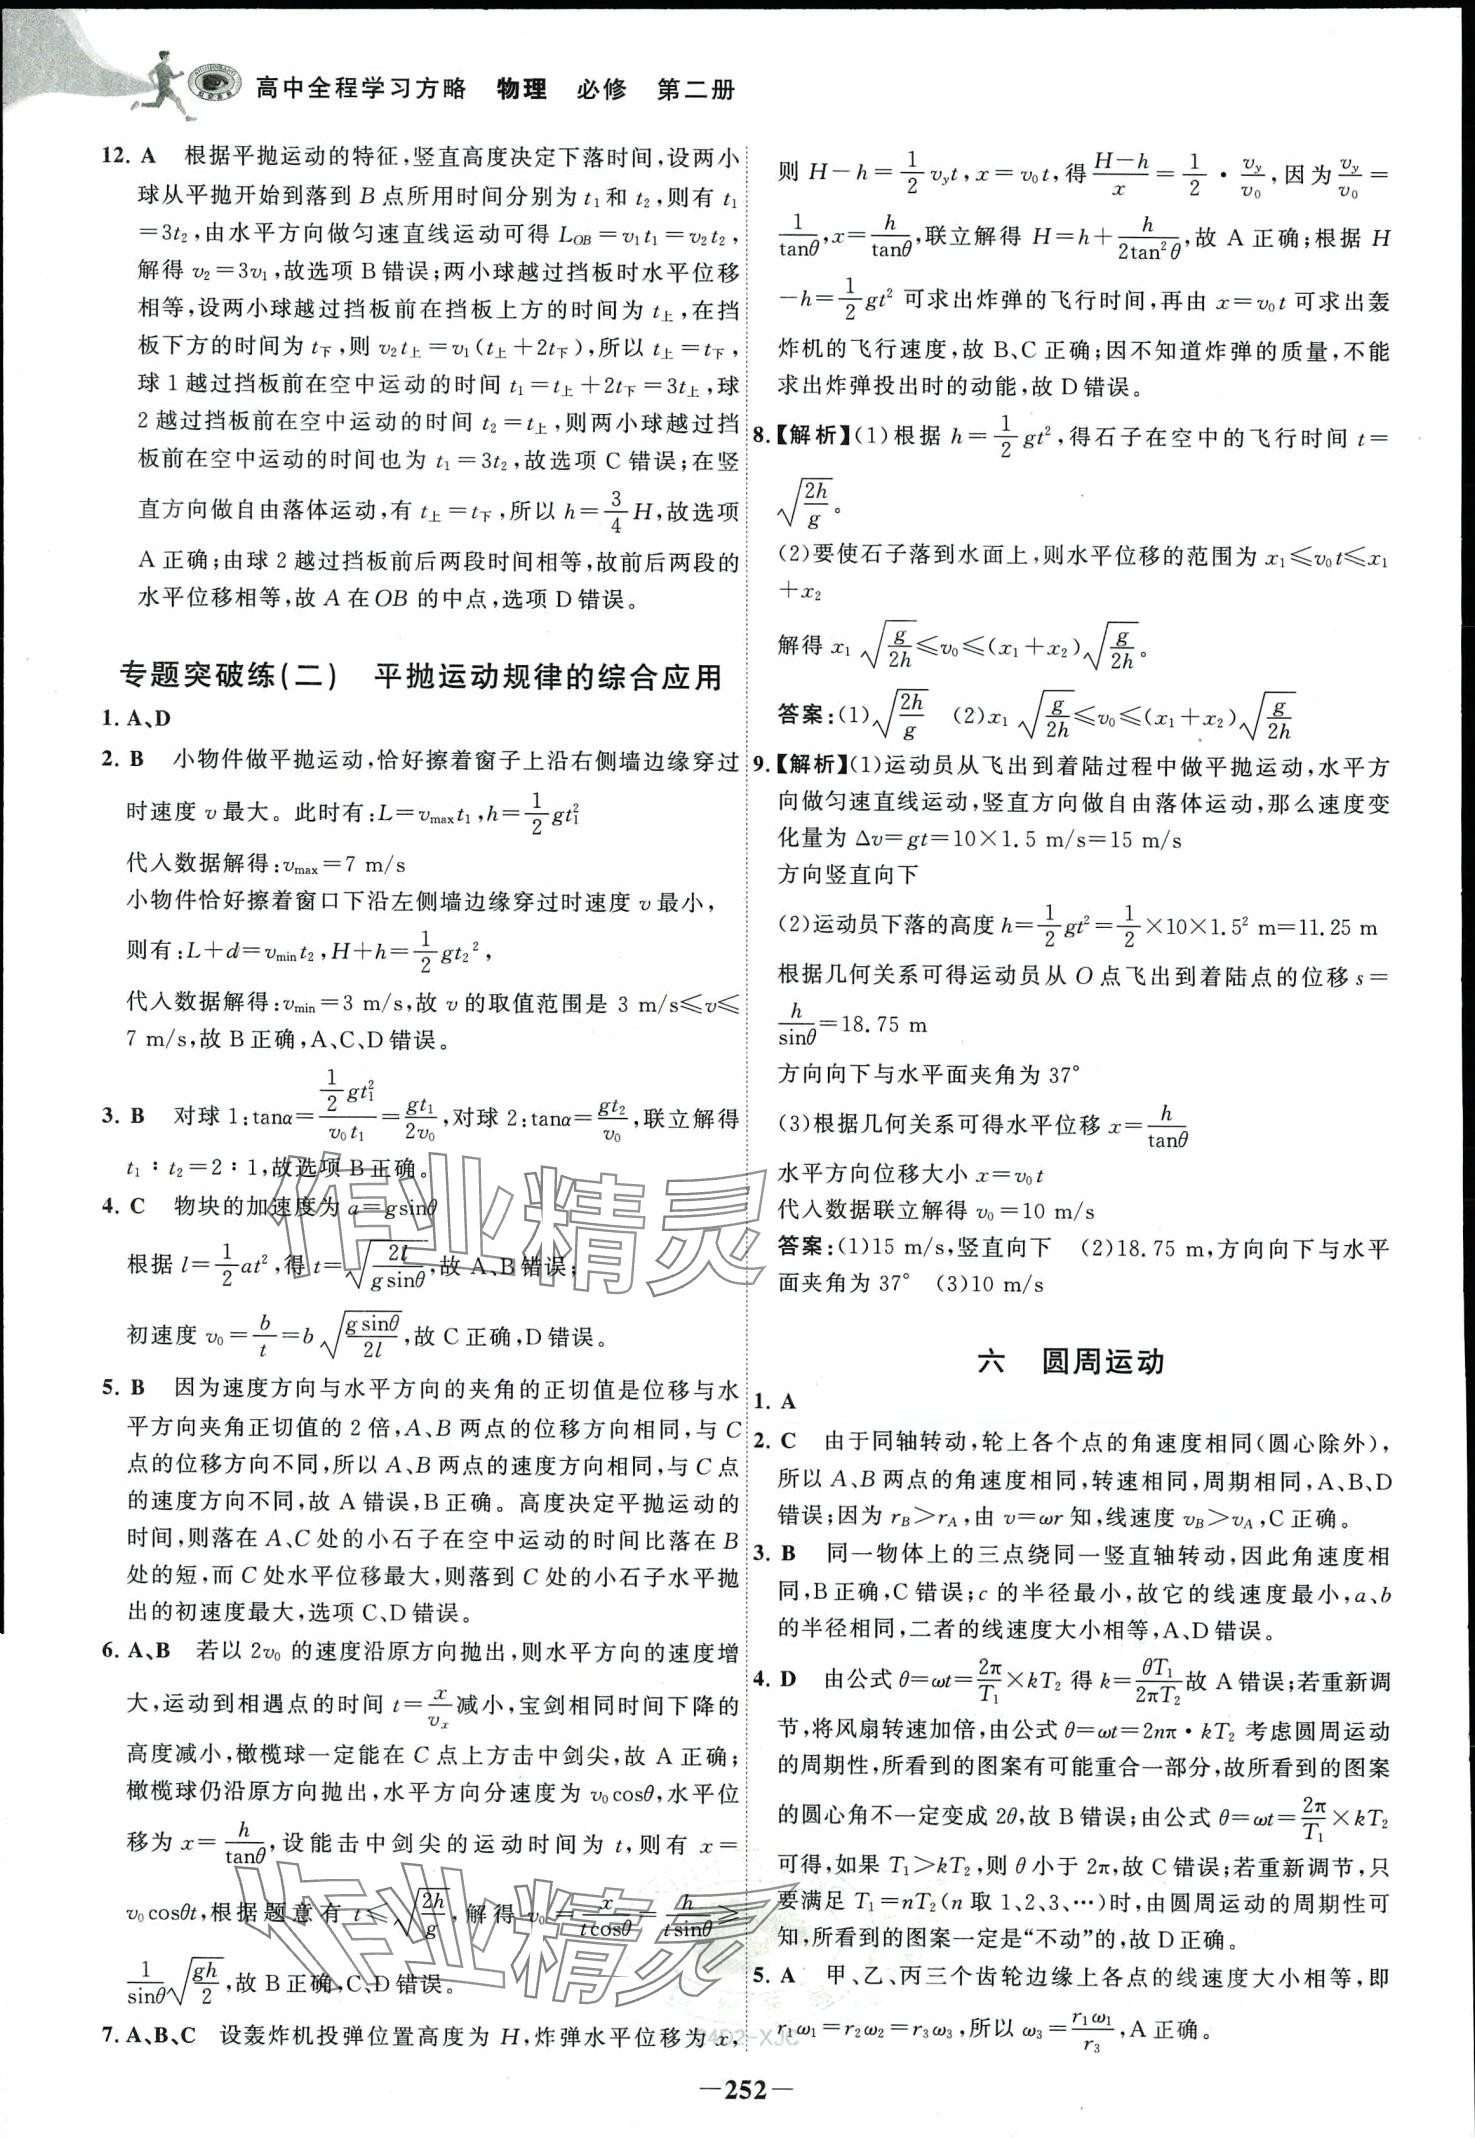 高中全程学习方略 物理 必修 第二册
12. A 根据平抛运动的特征,竖直高度决定下落时间,设两小
球从平抛开始到落到 B 点所用时间分别为 t₁和 t₂,则有 t₁
=3t₂,由水平方向做匀速直线运动可得 L_OB=v₁t₁=v₂t₂,
解得 v₂=3v₁,故选项 B 错误;两小球越过挡板时水平位移
相等,设两小球越过挡板前在挡板上方的时间为 t上,在挡
板下方的时间为 t下,则 v₂t上=v₁(t上+2t下),所以 t上=t下,
球 1 越过挡板前在空中运动的时间 t₁=t上+2t下=3t上,球
2 越过挡板前在空中运动的时间 t₂=t上,则两小球越过挡
板前在空中运动的时间也为 t₁=3t₂,故选项 C 错误;在竖
直方向做自由落体运动,有 t上=t下,所以 h=3/4 H,故选项
A 正确;由球 2 越过挡板前后两段时间相等,故前后两段的
水平位移相等,故 A 在 OB 的中点,选项 D 错误。
专题突破练(二) 平抛运动规律的综合应用
1. A、D
2. B 小物件做平抛运动,恰好擦着窗子上沿右侧墙边缘穿过
时速度 v 最大。此时有:L=v_max t₁,h=1/2 gt₁²
代入数据解得:v_max=7 m/s
小物件恰好擦着窗口下沿左侧墙边缘穿过时速度 v 最小,
则有:L+d=v_min t₂,H+h=1/2 gt₂²,
代入数据解得:v_min=3 m/s,故 v 的取值范围是 3 m/s≤v≤
7 m/s,故 B 正确,A、C、D 错误。
3. B 对球 1:tanα=(1/2 gt₁²)/(v₀t₁)=gt₁/2v₀,对球 2:tanα=gt₂/v₀,联立解得
t₁∶t₂=2∶1,故选项 B 正确。
4. C 物块的加速度为 a=gsinθ
根据 l=1/2 at²,得 t=√(2l/gsinθ),故 A、B 错误;
初速度 v₀=b/t=b√(gsinθ/2l),故 C 正确,D 错误。
5. B 因为速度方向与水平方向的夹角的正切值是位移与水
平方向夹角正切值的 2 倍,A、B 两点的位移方向相同,与 C
点的位移方向不同,所以 A、B 两点的速度方向相同,与 C 点
的速度方向不同,故 A 错误,B 正确。高度决定平抛运动的
时间,则落在 A、C 处的小石子在空中运动的时间比落在 B
处的短,而 C 处水平位移最大,则落到 C 处的小石子水平抛
出的初速度最大,选项 C、D 错误。
6. A、B 若以 2v₀ 的速度沿原方向抛出,则水平方向的速度增
大,运动到相遇点的时间 t=x/vₓ减小,宝剑相同时间下降的
高度减小,橄榄球一定能在 C 点上方击中剑尖,故 A 正确;
橄榄球仍沿原方向抛出,水平方向分速度为 v₀cosθ,水平位
移为 x=h/tanθ,设能击中剑尖的运动时间为 t,则有 x=
v₀cosθt,根据题意有 t≤√(2h/g),解得 v₀=x/(tcosθ)=h/(tsinθ)≥
1/sinθ √(gh/2),故 B 正确,C、D 错误。
7. A、B、C 设轰炸机投弹位置高度为 H,炸弹水平位移为 x,
则 H-h=1/2 v_y t,x=v₀t,得(H-h)/x=1/2·v_y/v₀,因为v_y/v₀=
1/tanθ,x=h/tanθ,联立解得 H=h+h/(2tan²θ),故 A 正确;根据 H
-h=1/2 gt² 可求出炸弹的飞行时间,再由 x=v₀t 可求出轰
炸机的飞行速度,故 B、C 正确;因不知道炸弹的质量,不能
求出炸弹投出时的动能,故 D 错误。
8.【解析】(1)根据 h=1/2 gt²,得石子在空中的飞行时间 t=
√(2h/g)。
(2)要使石子落到水面上,则水平位移的范围为 x₁≤v₀t≤x₁
+x₂
解得 x₁√(g/2h)≤v₀≤(x₁+x₂)√(g/2h)。
答案:(1)√(2h/g) (2)x₁√(g/2h)≤v₀≤(x₁+x₂)√(g/2h)
9.【解析】(1)运动员从飞出到着陆过程中做平抛运动,水平方
向做匀速直线运动,竖直方向做自由落体运动,那么速度变
化量为 Δv=gt=10×1.5 m/s=15 m/s
方向竖直向下
(2)运动员下落的高度 h=1/2 gt²=1/2×10×1.5² m=11.25 m
根据几何关系可得运动员从 O 点飞出到着陆点的位移 s=
h/sinθ=18.75 m
方向向下与水平面夹角为 37°
(3)根据几何关系可得水平位移 x=h/tanθ
水平方向位移大小 x=v₀t
代入数据联立解得 v₀=10 m/s
答案:(1)15 m/s,竖直向下 (2)18.75 m,方向向下与水平
面夹角为 37° (3)10 m/s
六 圆周运动
1. A
2. C 由于同轴转动,轮上各个点的角速度相同(圆心除外),
所以 A、B 两点的角速度相同,转速相同,周期相同,A、B、D
错误;因为 r_B>r_A,由 v=ωr 知,线速度 v_B>v_A,C 正确。
3. B 同一物体上的三点绕同一竖直轴转动,因此角速度相
同,B 正确,C 错误;c 的半径最小,故它的线速度最小,a、b
的半径相同,二者的线速度大小相等,A、D 错误。
4. D 由公式 θ=ωt=2π/T₁×kT₂ 得 k=θT₁/2πT₂故 A 错误;若重新调
节,将风扇转速加倍,由公式 θ=ωt=2nπ·kT₂ 考虑圆周运动
的周期性,所看到的图案有可能重合一部分,故所看到的图案
的圆心角不一定变成 2θ,故 B 错误;由公式 θ=ωt=2π/T₁×kT₂
可得,如果 T₁>kT₂,则 θ 小于 2π,故 C 错误;若重新调节,只
要满足 T₁=nT₂(n 取 1、2、3、…)时,由圆周运动的周期性可
知,所看到的图案一定是“不动”的,故 D 正确。
5. A 甲、乙、丙三个齿轮边缘上各点的线速度大小相等,即
r₁ω₁=r₂ω₂=r₃ω₃,所以 ω₃=r₁ω₁/r₃,A 正确。
—252—
作业精灵
作业精灵